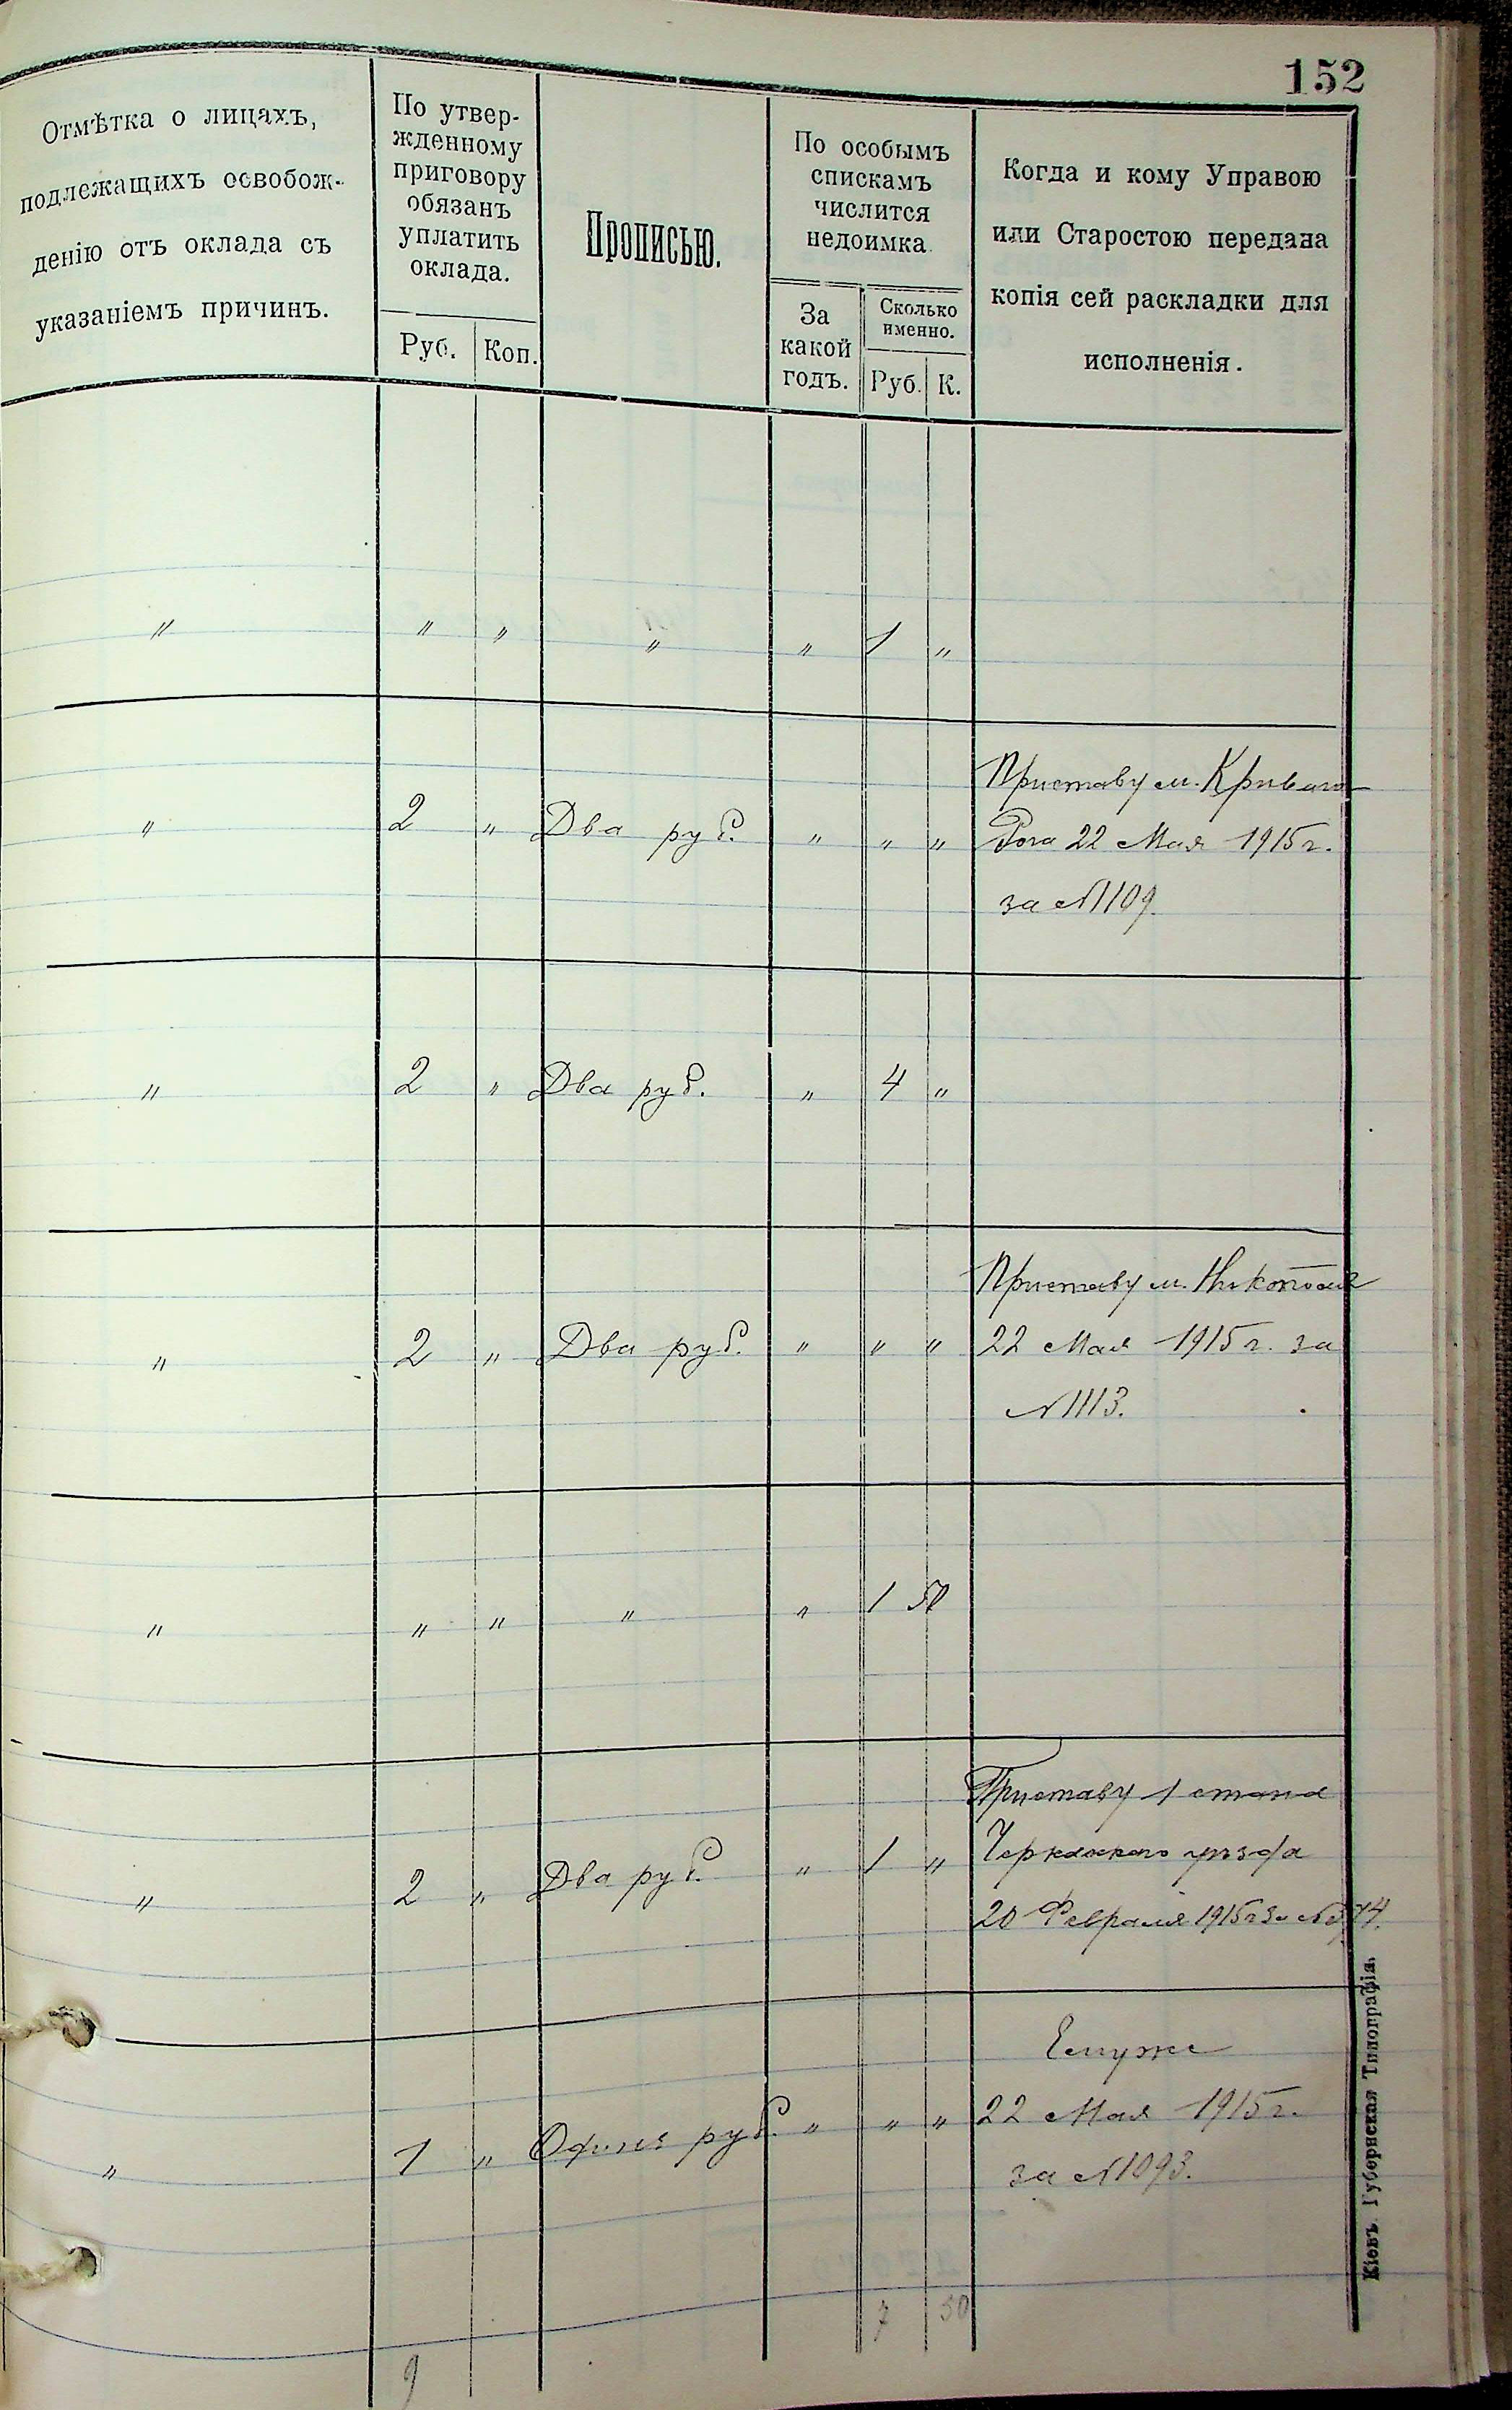 152
Отмѣтка о лицахъ,
подлежащихъ освобож-
денію отъ оклада съ
указаніемъ причинъ.
По утвер-
жденному
приговору
обязанъ
уплатить
оклада.
Руб. Коп.
Прописью.
По особымъ
спискамъ
числится
недоимка
За
какой
годъ.
Сколько
именно.
Руб. К.
Когда и кому Управою
или Старостою передана
копія сей раскладки для
исполненія.
" " " " " 1 "
Приставу м. Кривого
" 2 " Два руб. " " " Рога 22 Мая 1915 г.
за № 1109.
" 2 " Два руб. " 4 "
Приставу м. Никополя
" 2 " Два руб. " " " 22 Мая 1915 г. за
№ 1113.
" " " " " 1 50
Приставу 1 стана
" 2 " Два руб. " 1 " Черкасскаго уѣзда
20 Февраля 1915 г за №
Емуже
" 1 " Одинъ руб. " " " 22 Мая 1915 г.
за № 1093.
7 50
9
Кіевъ. Губернская Типографія.